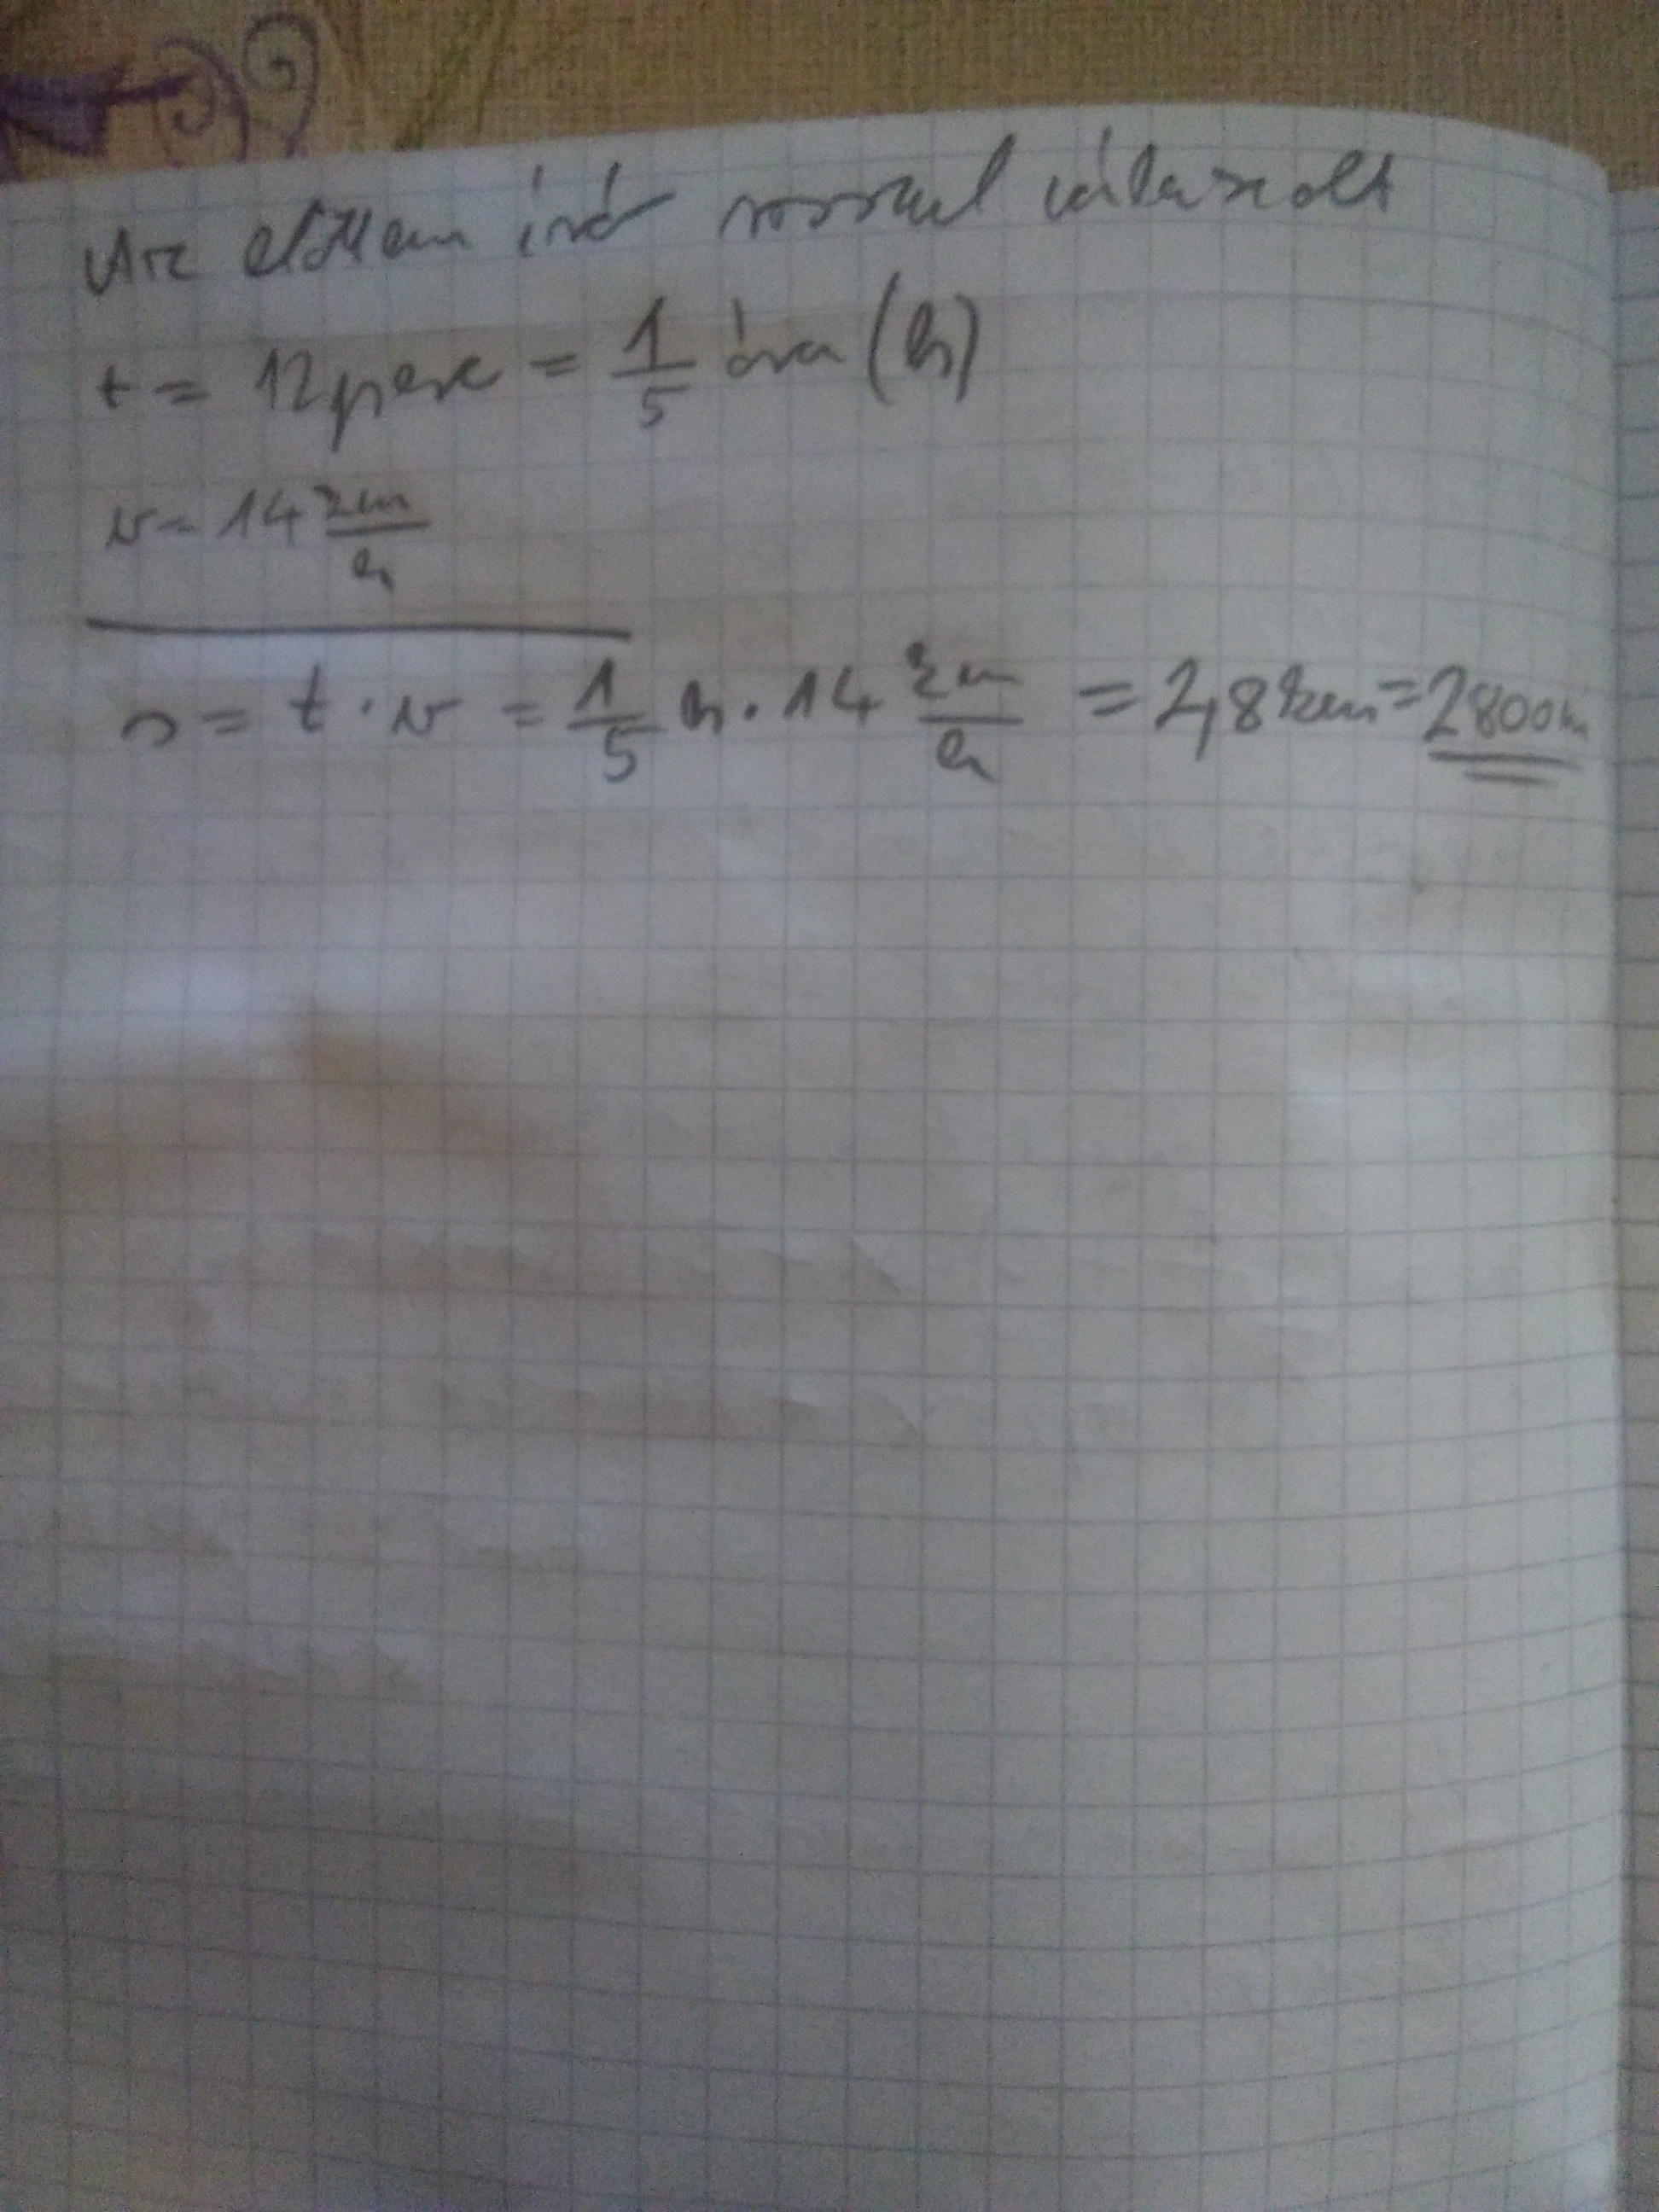 Az előttem író rosszul válaszolt
t = 12 perc = 1/5 óra (h)
v = 14 km/h
s = t · v = 1/5 h · 14 km/h = 2,8 km = 2800m